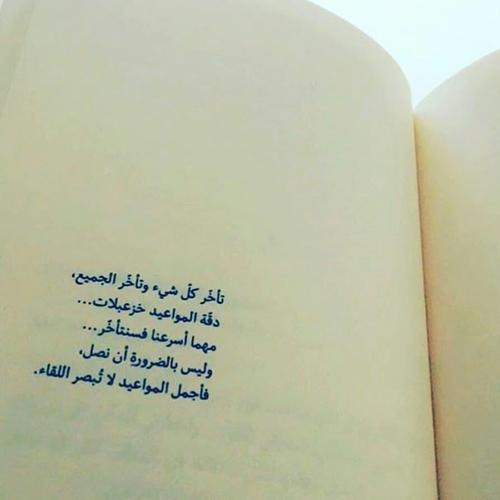 تأخّر كلّ شيء وتأخّر الجميع،
دقّة المواعيد خزعبلات...
مهما أسرعنا فسنتأخّر...
وليس بالضرورة أن نصل،
فأجمل المواعيد لا تُبصر اللقاء.